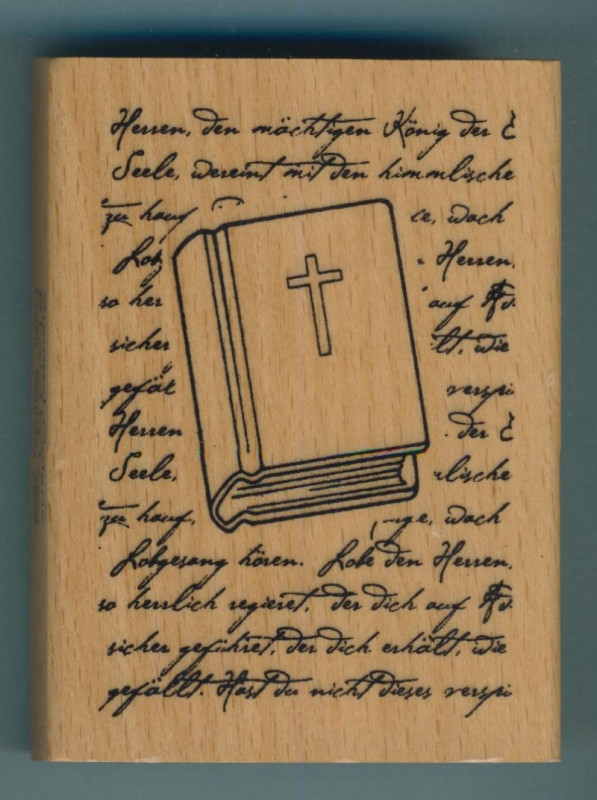 Herren, den mächtigen König der E
Seele, vereint mit den himmlische
zu hauf ce, wach
Lob Herren,
so her auf Ad
sicher lt, wie
gefäl verspü
Herren der E
Seele, lische
zu hauf, nge, wach
Lobgesang hören. Lobe den Herren,
so herrlich regieret, der dich auf Ad
sicher geführet, der dich erhält, wie
gefällt. Hast du nicht dieses verspü